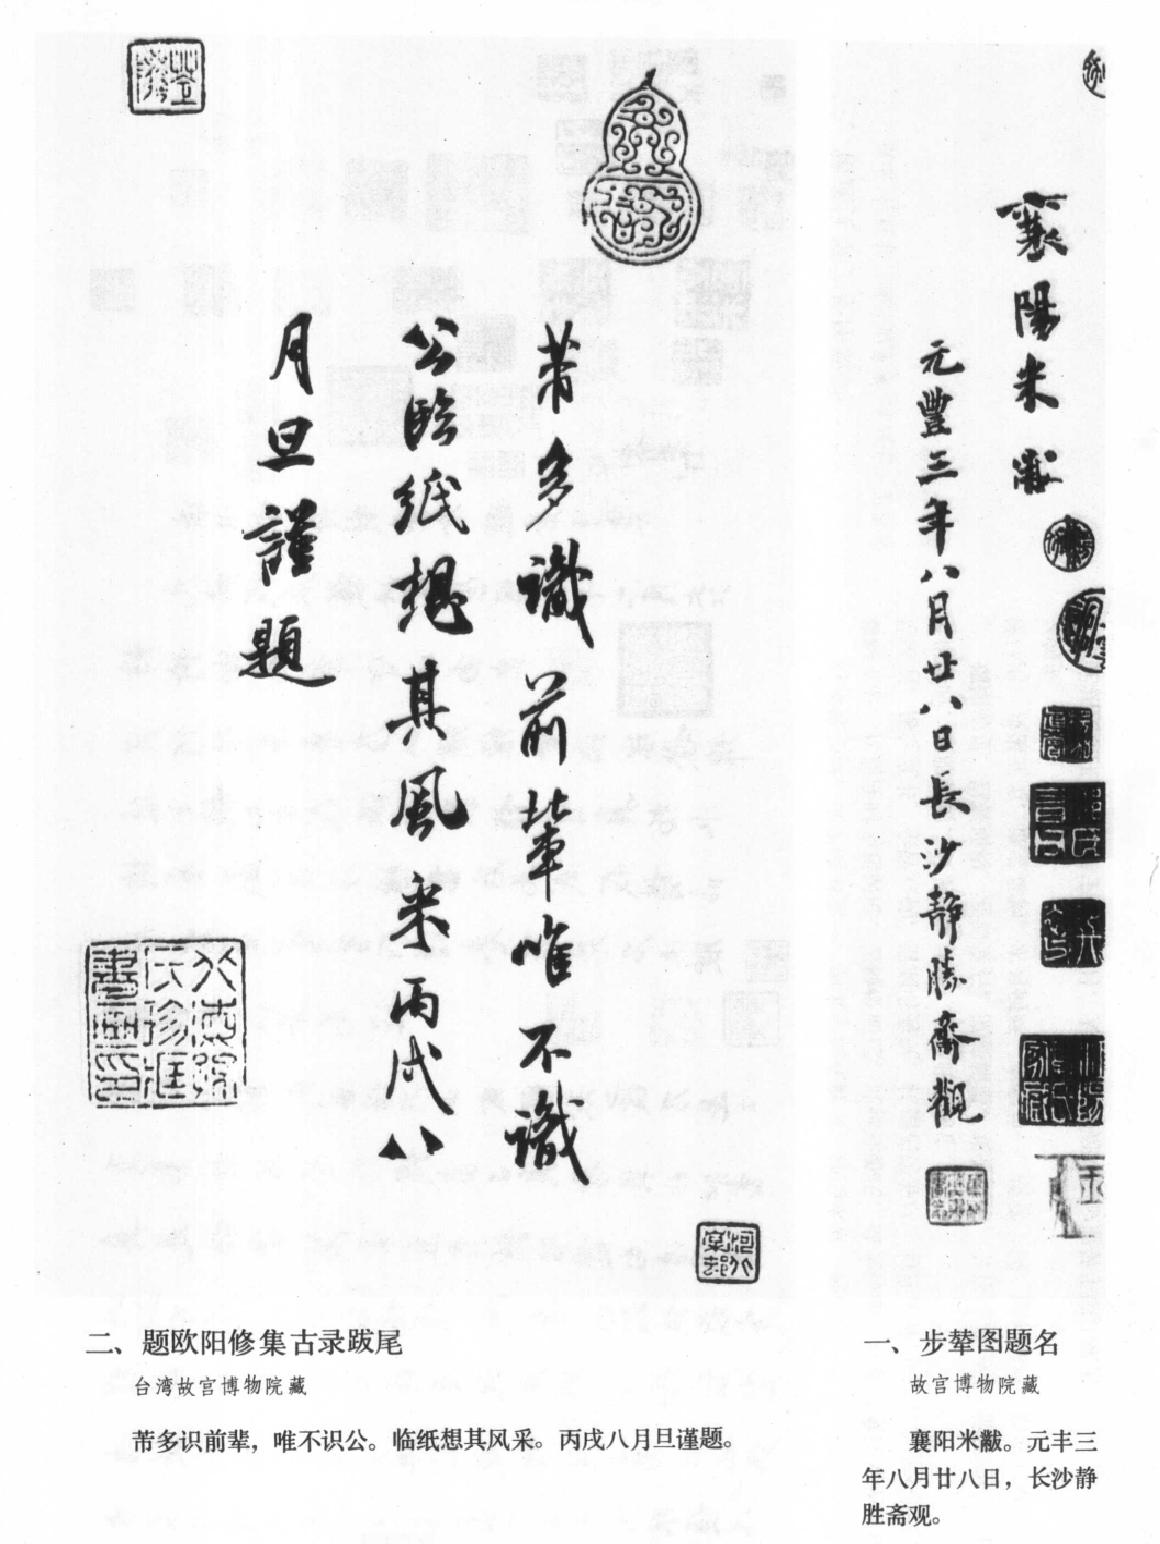 襄陽米黻
元豐三年八月廿八日長沙靜勝齋觀
芾多識前輩唯不識
公臨紙想其風采丙戌八
月旦謹題
一、步辇图题名
故宫博物院藏
襄阳米黻。元丰三
年八月廿八日，长沙静
胜斋观。
二、题欧阳修集古录跋尾
台湾故宫博物院藏
芾多识前辈，唯不识公。临纸想其风采。丙戌八月旦谨题。